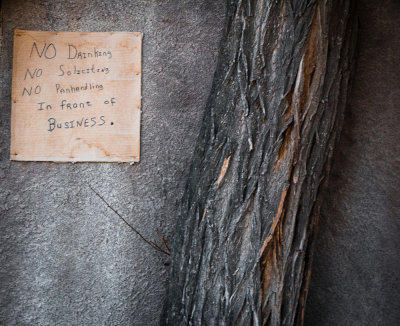 NO Drinking
NO Soliciting
NO Panhandling
In front of
BUSINESS.